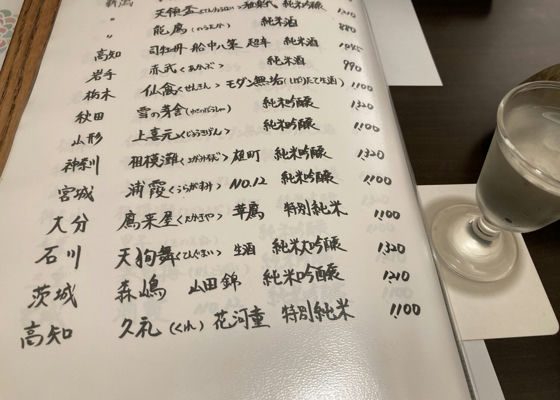 新潟 純米吟醸 1,210
〃 能鷹 純米酒 880
高知 司牡丹 船中八策 超辛 純米酒
岩手 赤武くあかぶ> 純米酒 990
栃木 仙禽くせんきん> モダン無垢 1,100
秋田 雪の茅舎 純米吟醸 1,320
山形 上喜元くじょうきげん> 純米吟醸 1,100
神奈川 相模灘くさがみなだ> 雄町 純米吟醸 1,320
宮城 浦霞くうらがすみ> NO.12 純米吟醸 1,100
大分 鷹来屋くたかきや> 華鷹 特別純米 1,100
石川 天狗舞くてんぐまい> 生酒 純米大吟醸 1,320
茨城 森嶋 山田錦 純米吟醸 1,210
高知 久礼(くれ) 花河童 特別純米 1,100